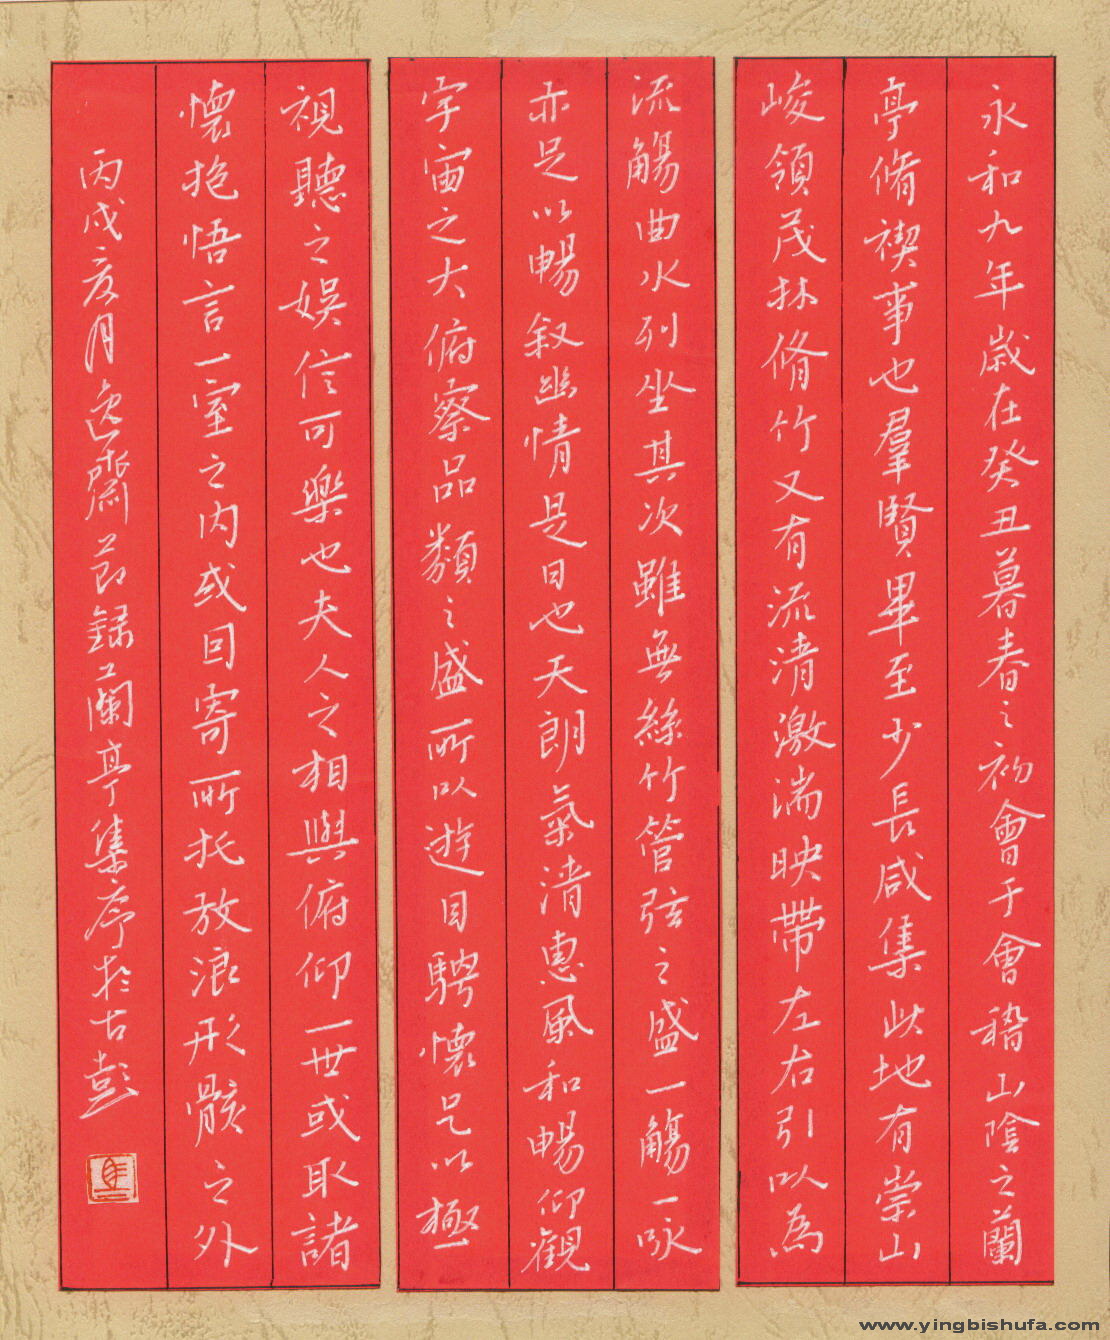 永和九年歲在癸丑暮春之初會于會稽山陰之蘭
亭脩禊事也羣賢畢至少長咸集此地有崇山
峻領茂林脩竹又有流清激湍映帶左右引以為
流觴曲水列坐其次雖無絲竹管弦之盛一觴一咏
亦足以暢叙幽情是日也天朗氣清惠風和暢仰觀
宇宙之大俯察品類之盛所以遊目騁懷足以極
視聽之娛信可樂也夫人之相與俯仰一世或取諸
懷抱悟言一室之内或回寄所托放浪形骸之外
丙戌亥月逸齋節録蘭亭集序於古彭
www.yingbishufa.com